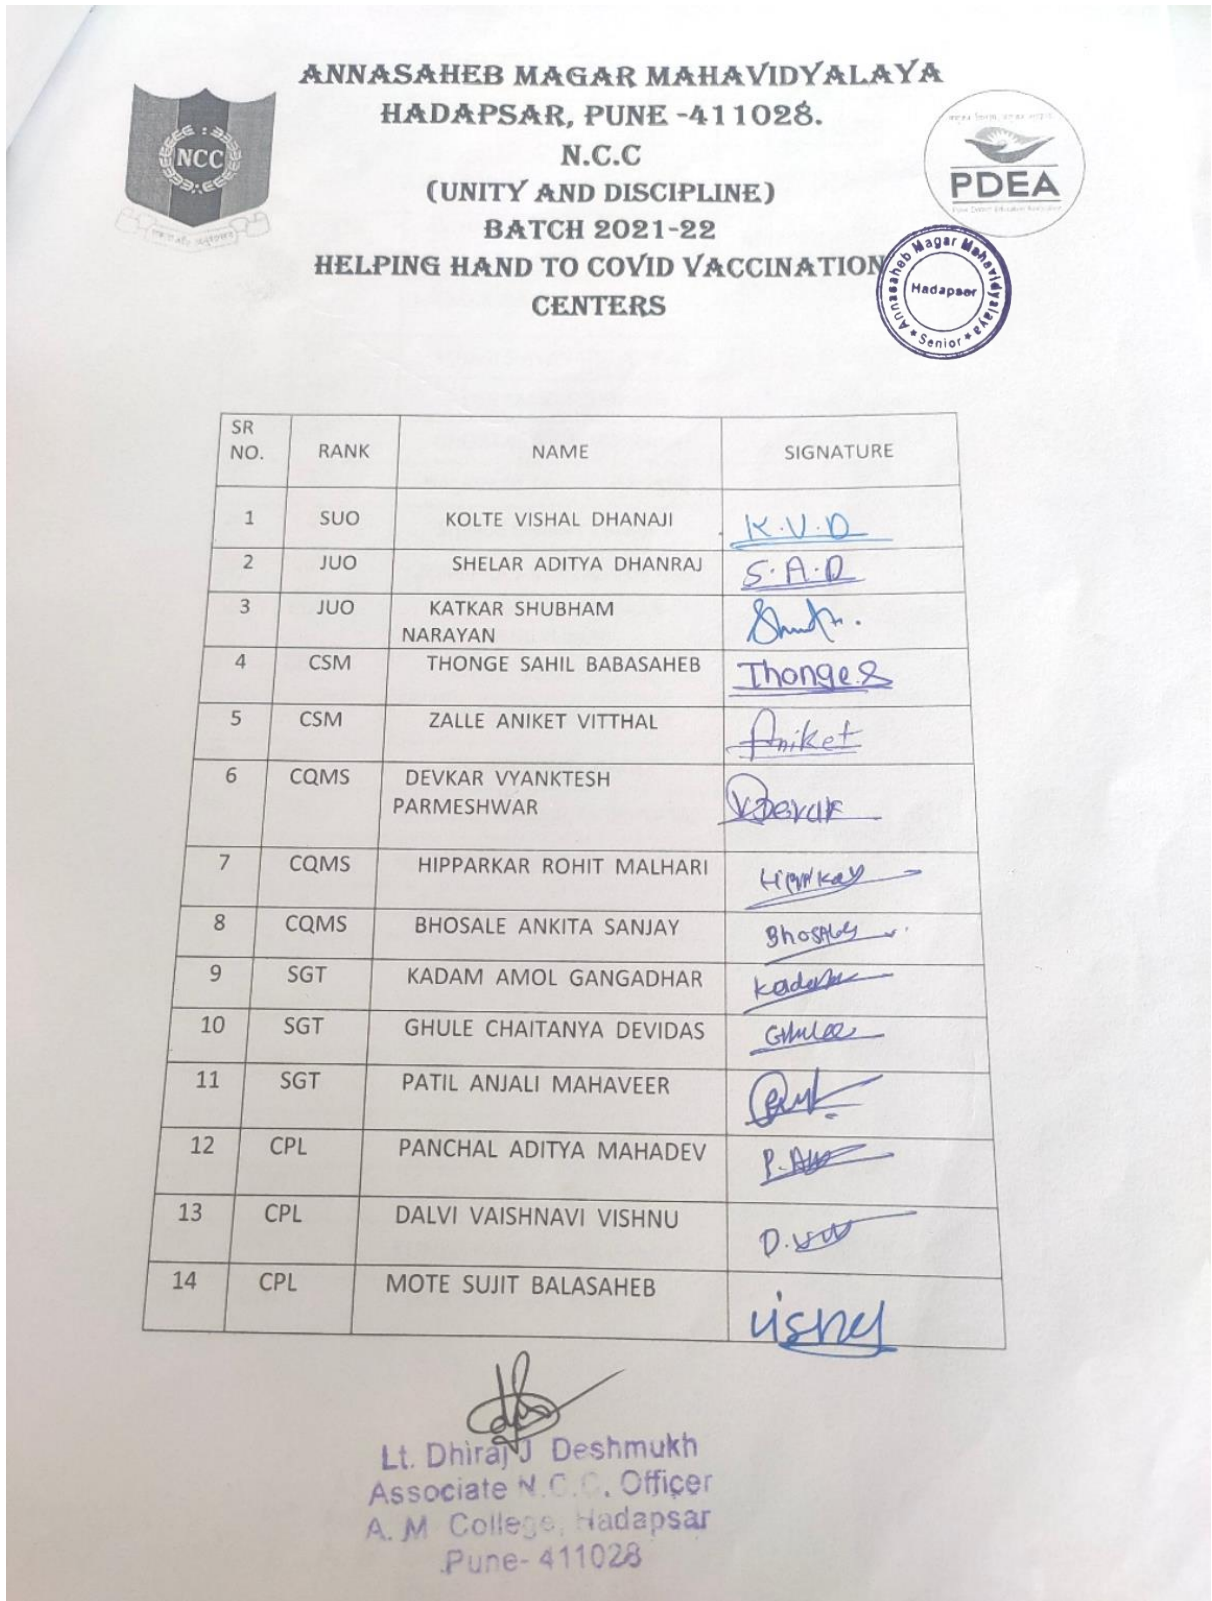 ANNASAHEB MAGAR MAHAVIDYALAYA
HADAPSAR, PUNE -411028.
N.C.C
(UNITY AND DISCIPLINE)
BATCH 2021-22
HELPING HAND TO COVID VACCINATION
CENTERS
NCC
PDEA
Annasaheb Magar Mahavidyalaya
Hadapsar
* Senior *
SR
NO. RANK NAME SIGNATURE
1 SUO KOLTE VISHAL DHANAJI K.V.D
2 JUO SHELAR ADITYA DHANRAJ S.A.D
3 JUO KATKAR SHUBHAM
NARAYAN
4 CSM THONGE SAHIL BABASAHEB Thonge.S
5 CSM ZALLE ANIKET VITTHAL Aniket
6 CQMS DEVKAR VYANKTESH
PARMESHWAR
7 CQMS HIPPARKAR ROHIT MALHARI
8 CQMS BHOSALE ANKITA SANJAY
9 SGT KADAM AMOL GANGADHAR Kadam
10 SGT GHULE CHAITANYA DEVIDAS
11 SGT PATIL ANJALI MAHAVEER
12 CPL PANCHAL ADITYA MAHADEV
13 CPL DALVI VAISHNAVI VISHNU
14 CPL MOTE SUJIT BALASAHEB
Lt. Dhiraj J Deshmukh
Associate N.C.C. Officer
A. M College, Hadapsar
Pune- 411028